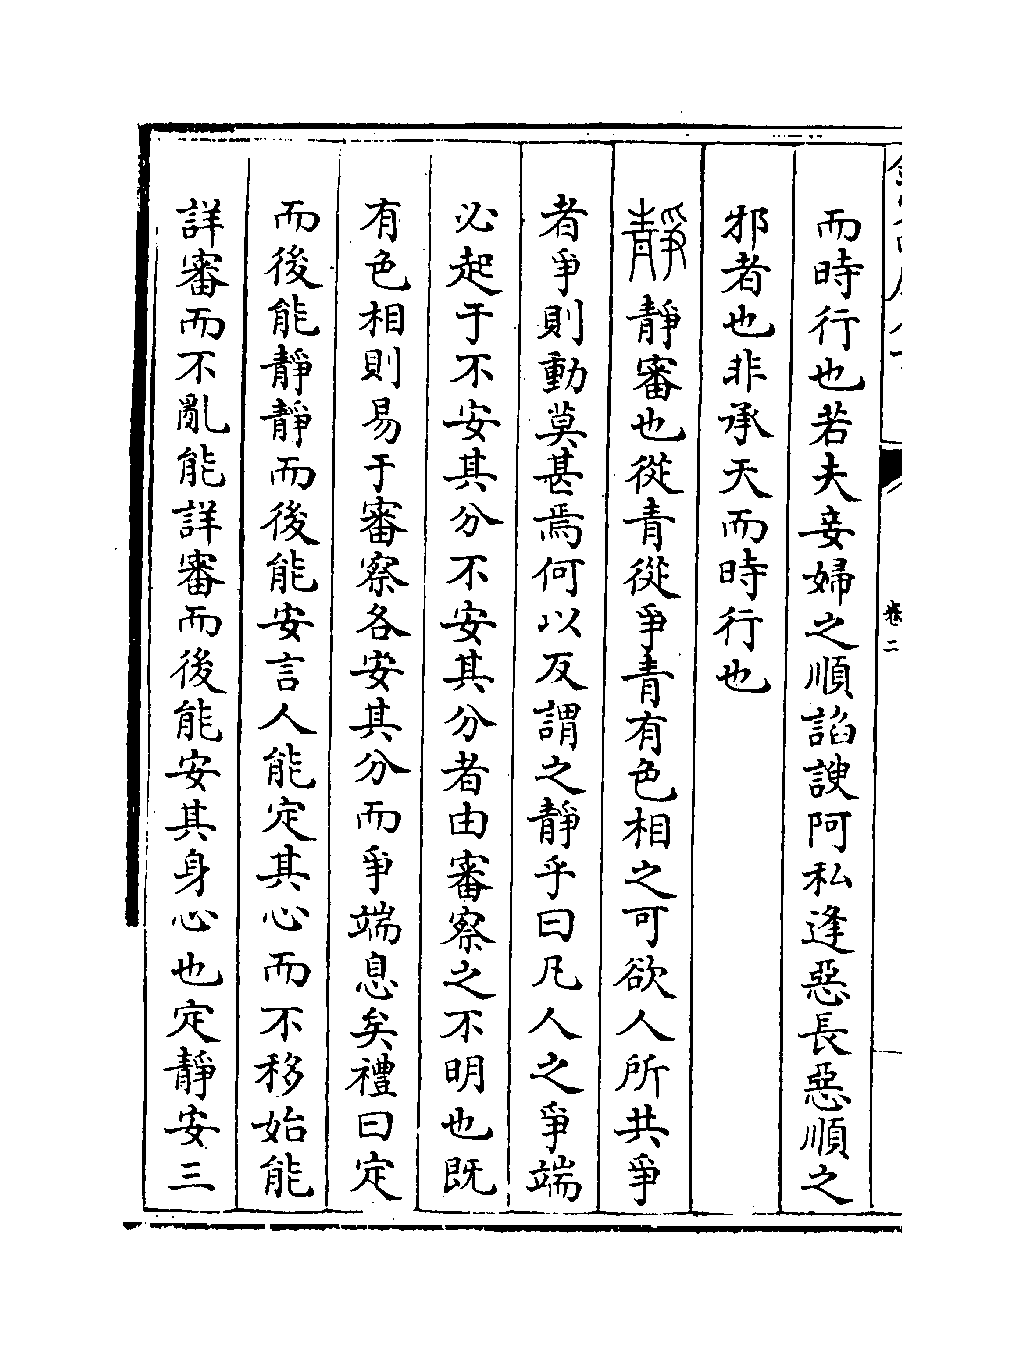 而時行也若夫妾婦之順諂諛阿私逢惡長惡順之
邪者也非承天而時行也
靜靜審也從青從爭青有色相之可欲人所共爭
者爭則動莫甚焉何以反謂之靜乎曰凡人之爭端
必起于不安其分不安其分者由審察之不明也既
有色相則易于審察各安其分而爭端息矣禮曰定
而後能靜靜而後能安言人能定其心而不移始能
詳審而不亂能詳審而後能安其身心也定靜安三
卷二